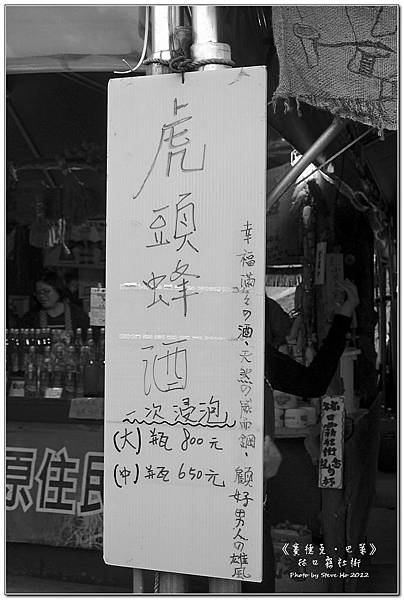 虎頭蜂酒
一次浸泡
(大)瓶 800元
(中)瓶 650元
幸福滿滿の酒、天然の威而鋼、顧好男人の雄風
原住民
《賽德克·巴萊》
林口霧社街
Photo by Steve Ho 2012